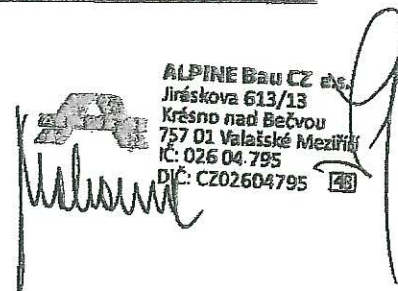 ALPINE Bau CZ a.s.
Jiráskova 613/13
Krásno nad Bečvou
757 01 Valašské Meziříčí
IČ: 026 04 795
DIČ: CZ02604795 48